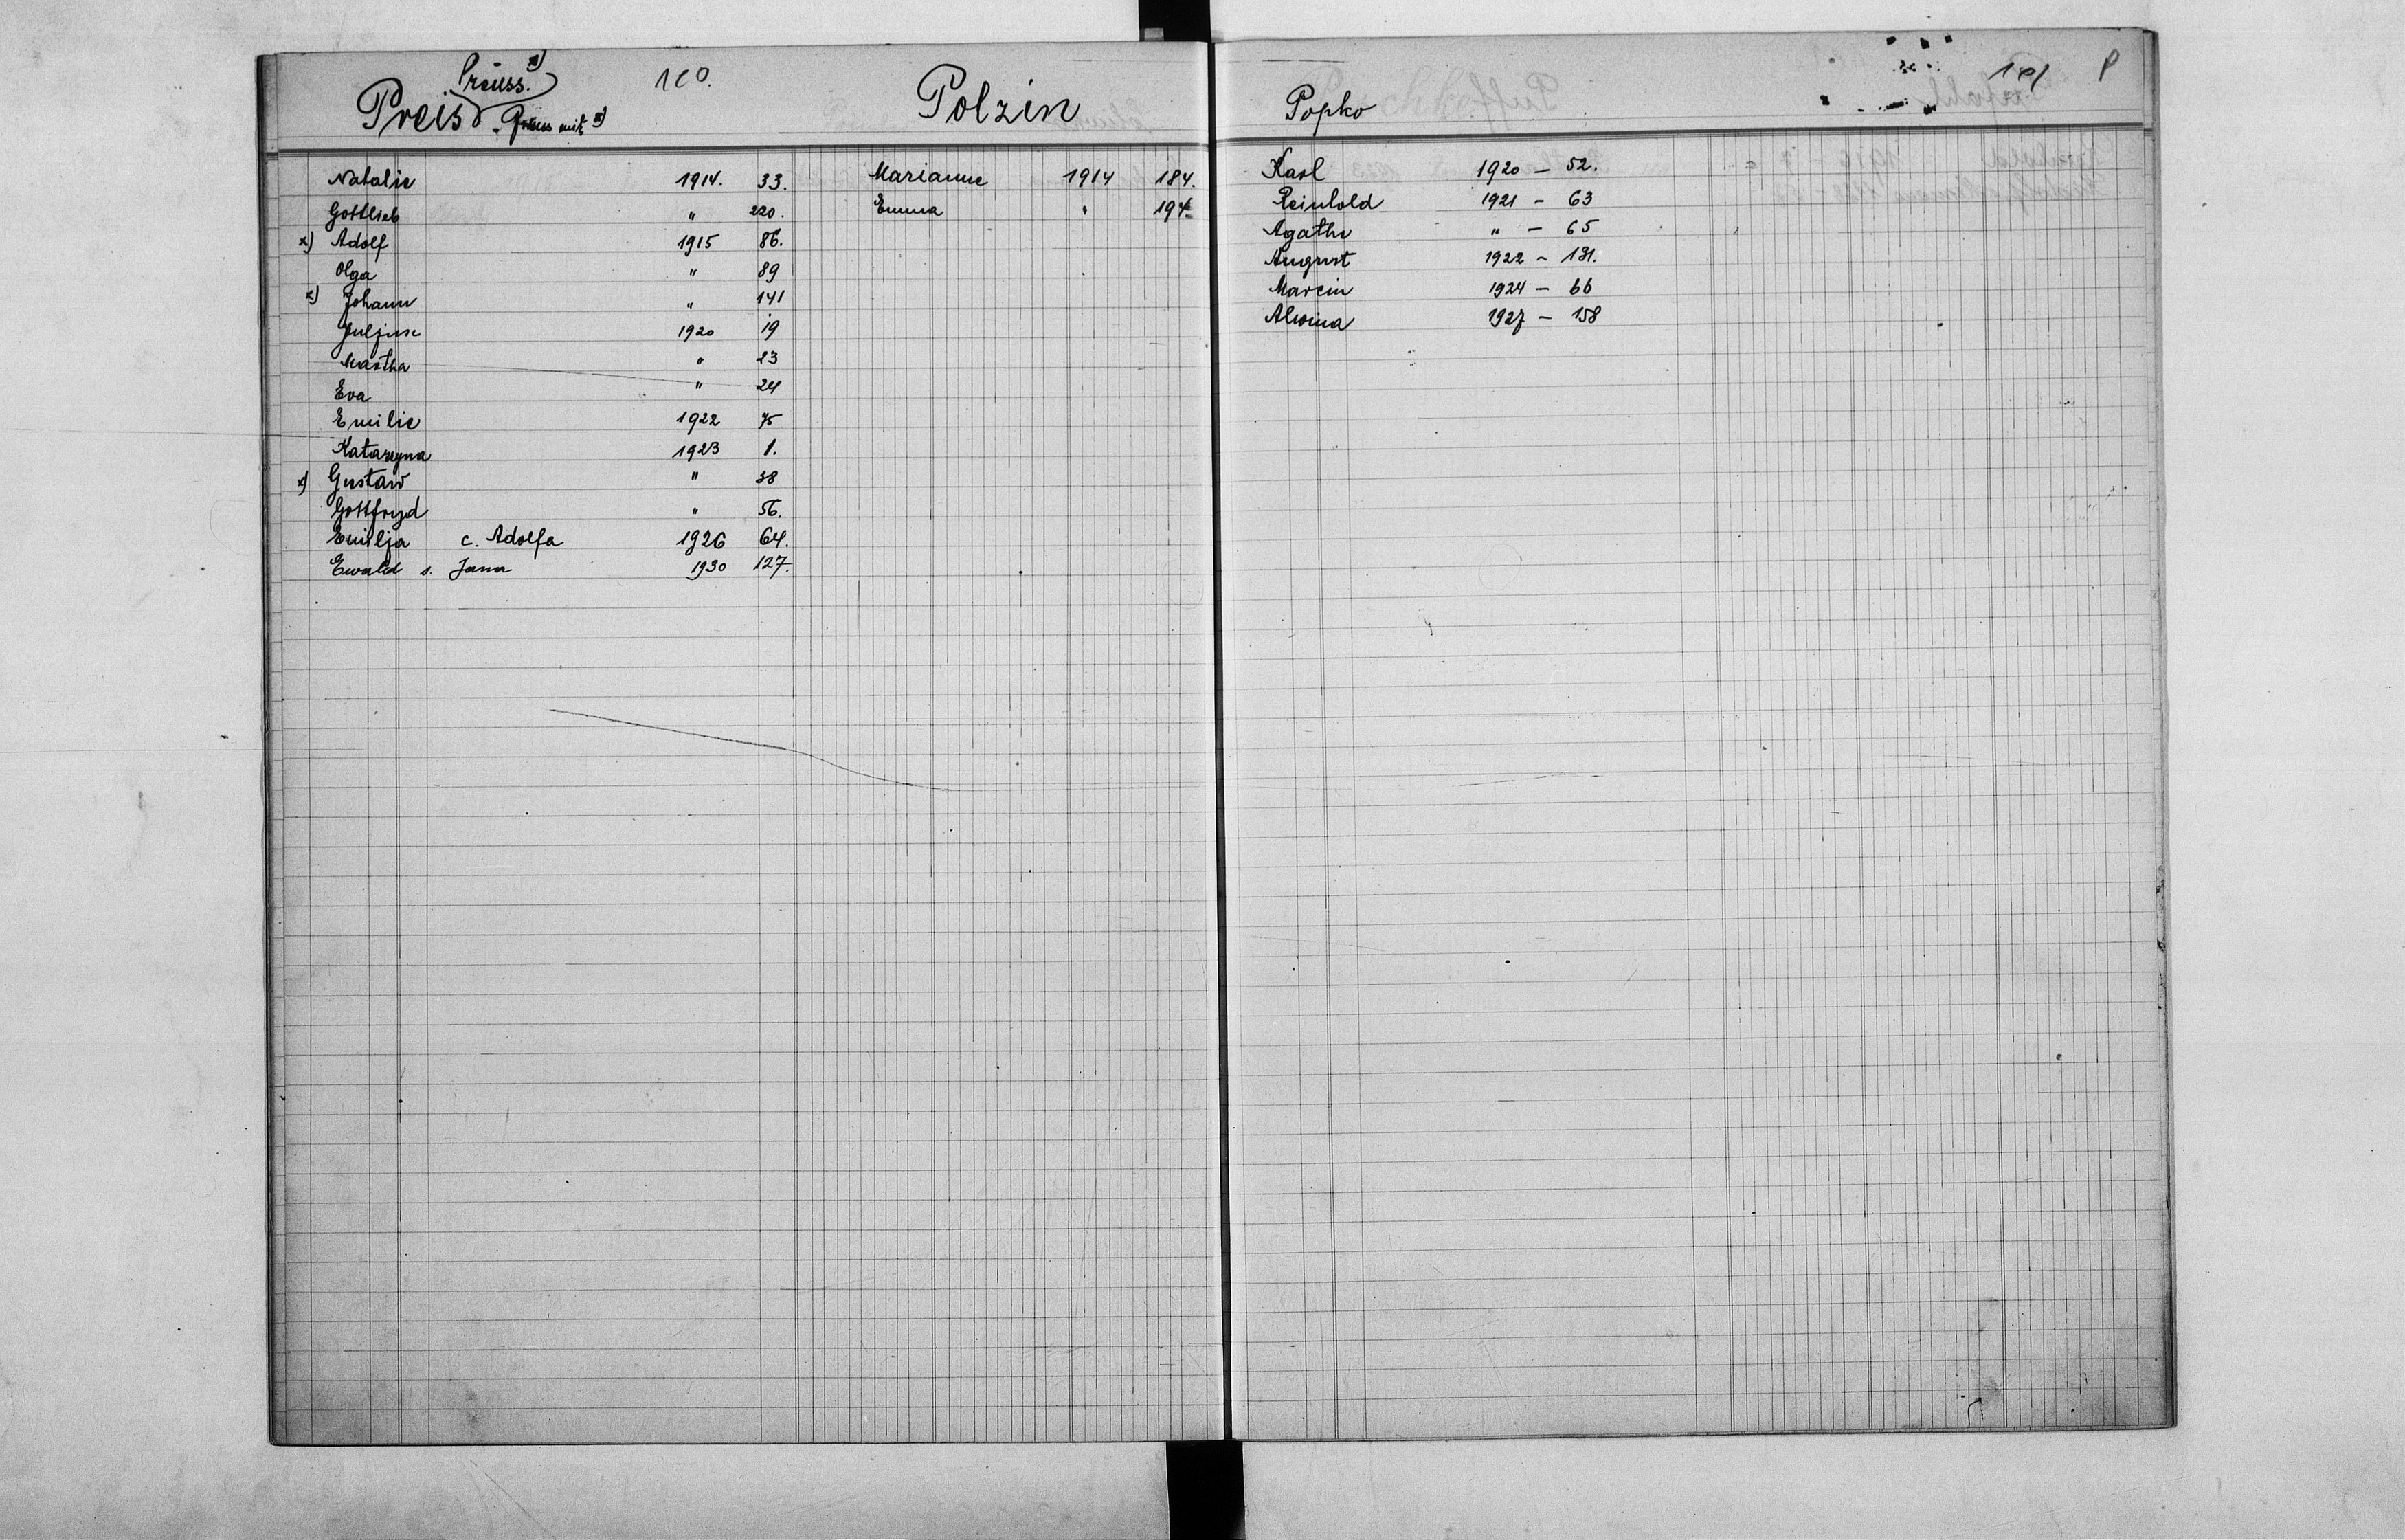 Preiss Preuss. x) Preuss mit x)
100.
Polzin
Natalie 1914. 33.
Gottlieb " 220.
x) Adolf 1915 86.
Olga " 89
x) Johann " 141
Juljusc 1920 19
Martha " 23
Eva " 24
Emilie 1922 75
Katarzyna 1923 1.
x) Gustaw " 38
Gottfryd " 56.
Emilja c. Adolfa 1926 64.
Ewald s. Jana 1930 127.
Marianne 1914 184.
Emma " 194.
Popko
101 P
Karl 1920 – 52.
Reinhold 1921 – 63
Agathe " – 65
August 1922 – 131.
Marcin 1924 – 66
Alwina 1927 – 158